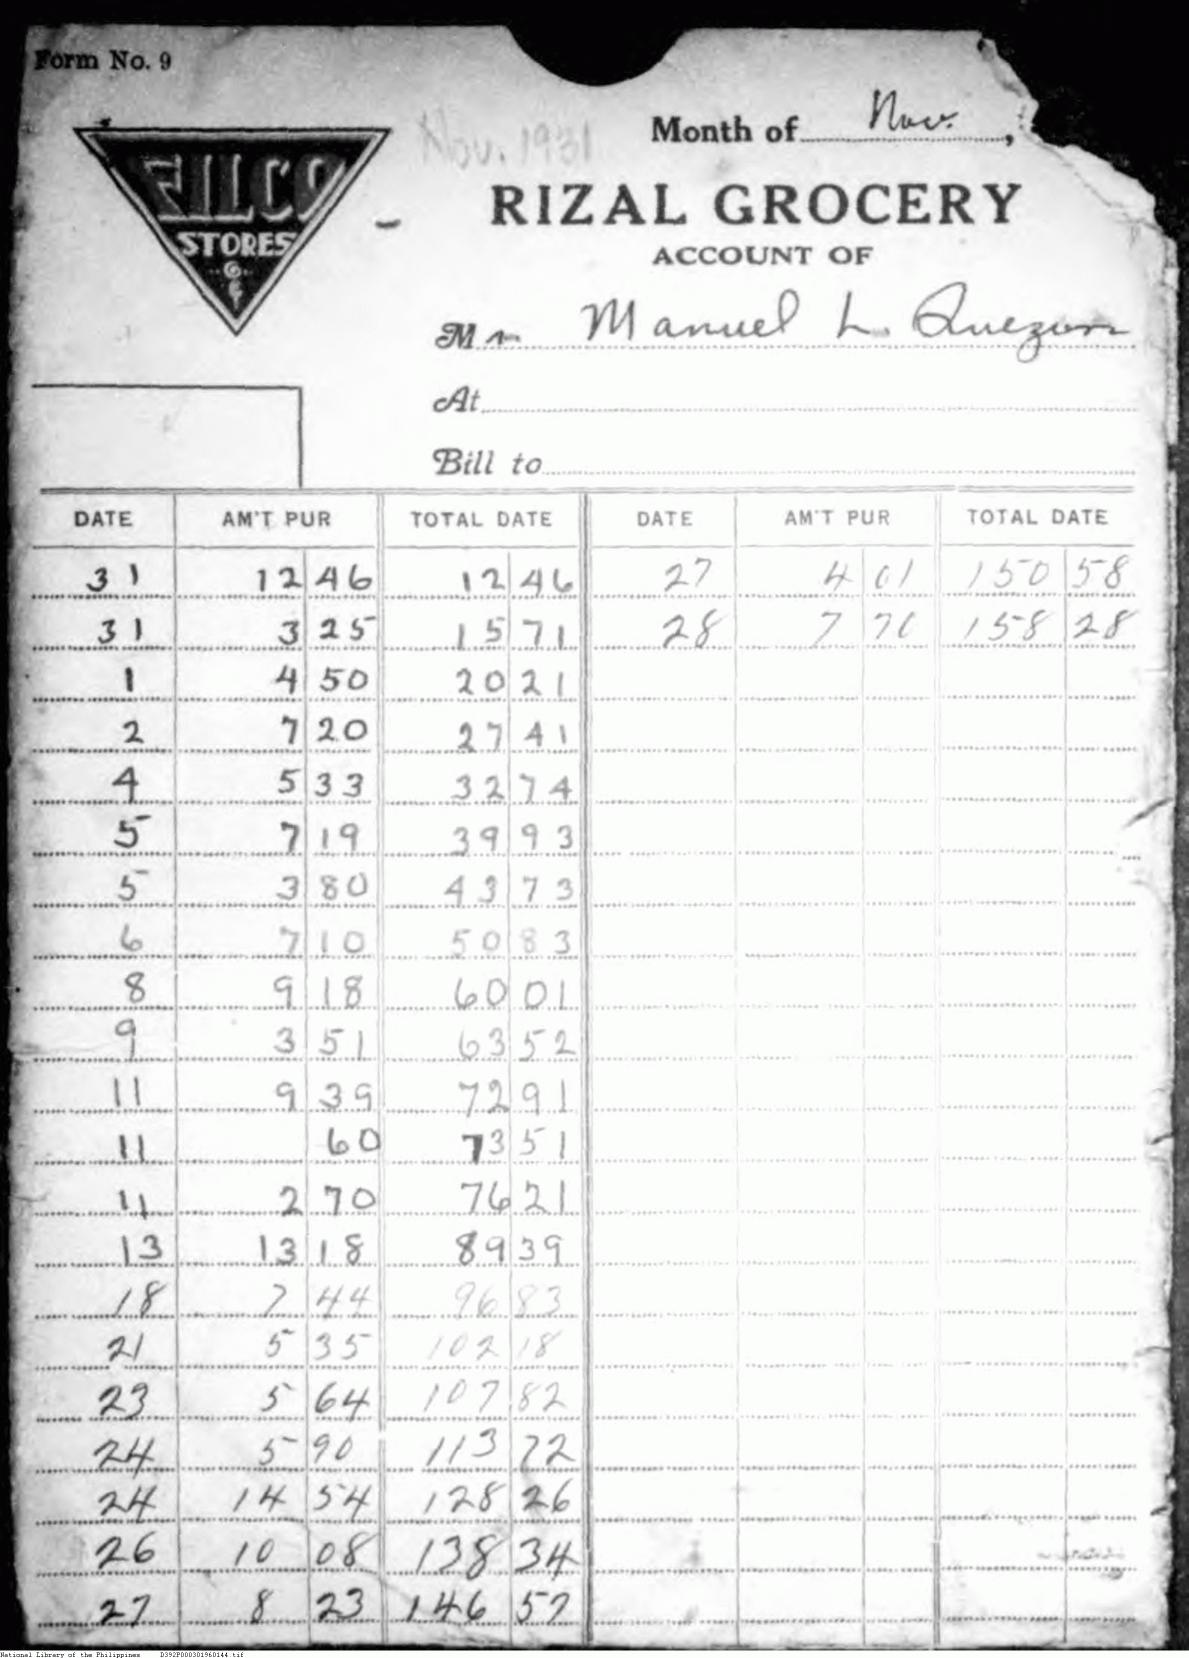 Form No. 9
Nov. 1931
Month of Nov. ,
FILCO
STORES
RIZAL GROCERY
ACCOUNT OF
Mr Manuel L. Quezon
At
Bill to
DATE AM'T PUR TOTAL DATE DATE AM'T PUR TOTAL DATE
31 12 46 12 46 27 4 01 150 58
31 3 25 15 71 28 7 70 158 28
1 4 50 20 21
2 7 20 27 41
4 5 33 32 74
5 7 19 39 93
5 3 80 43 73
6 7 10 50 83
8 9 18 60 01
9 3 51 63 52
11 9 39 72 91
11 60 73 51
11 2 70 76 21
13 13 18 89 39
18 7 44 96 83
21 5 35 102 18
23 5 64 107 82
24 5 90 113 72
24 14 54 128 26
26 10 08 138 34
27 8 23 146 57
National Library of the Philippines D392P000301960144.tif